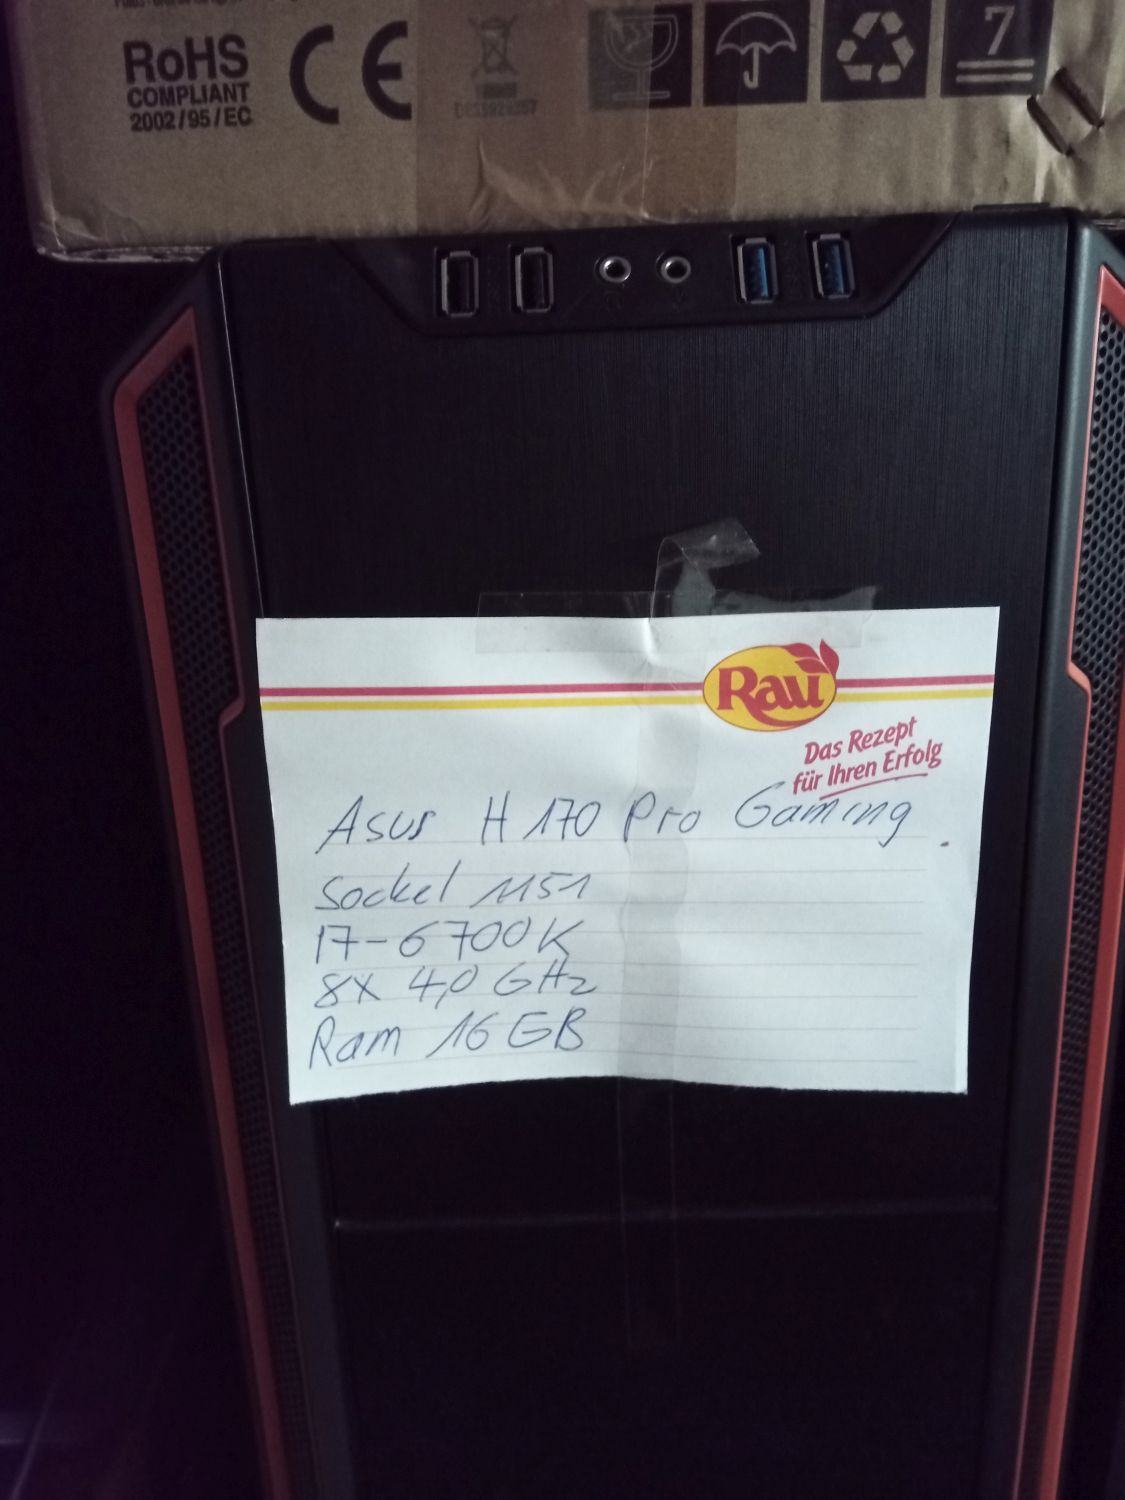 RoHS
COMPLIANT
2002/95/EC
CE
7
Rau
Das Rezept
für Ihren Erfolg
Asus H170 Pro Gaming
Sockel 1151
I7-6700K
8x 4,0 GHz
Ram 16 GB